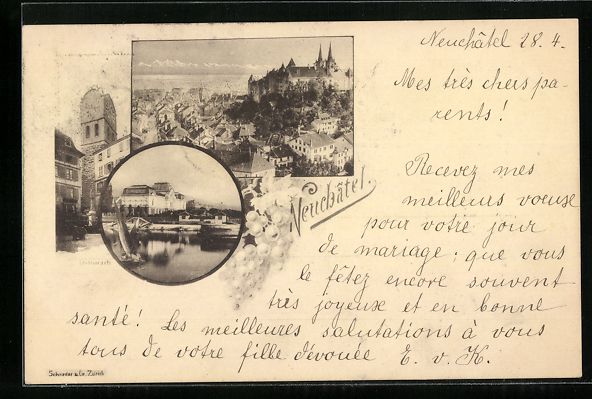 Neuchâtel 28. 4.
Mes très chers pa-
rents!
Recevez mes
meilleurs voeuse
pour votre jour
de mariage; que vous
le fêtez encore souvent
très joyeuse et en bonne
santé! Les meilleures salutations à vous
tous de votre fille dévouée E. v. K.
Neuchâtel.
Schroeder & Co. Zürich